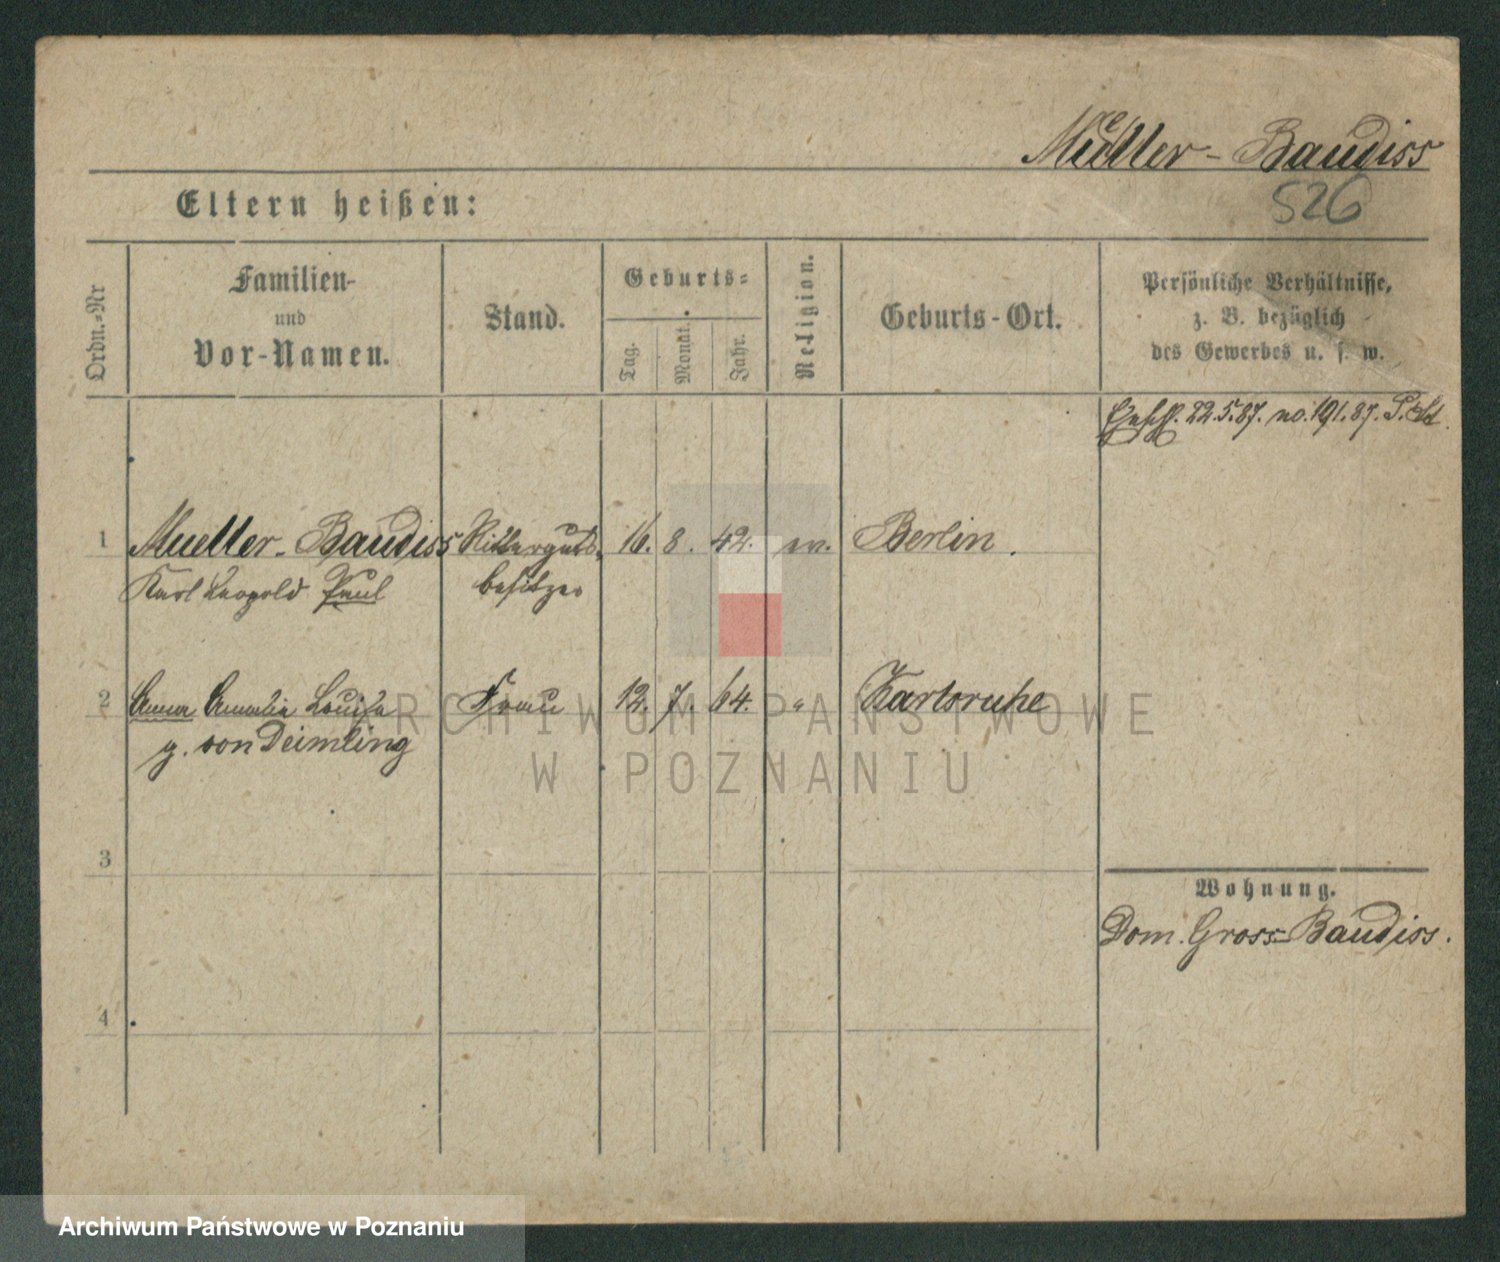 Mueller-Baudiss
526
Eltern heißen:
Ordn.-Nr
Familien-
und
Vor-Namen.
Stand.
Geburts-
Tag.
Monat.
Jahr.
Religion.
Geburts-Ort.
Persönliche Verhältnisse,
z. B. bezüglich
des Gewerbes u. s. w.
22.5.87. no. 191.87.
1 Mueller-Baudiss Ritterguts- 16. 8. 42. ev. Berlin.
Karl Leopold Paul besitzer
2 Anna Amalia Louise Frau 12. 7. 64. " Karlsruhe
g. von Deimling
ARCHIWUM PAŃSTWOWE
W POZNANIU
3
Wohnung.
Dom. Gross-Baudiss.
4
Archiwum Państwowe w Poznaniu